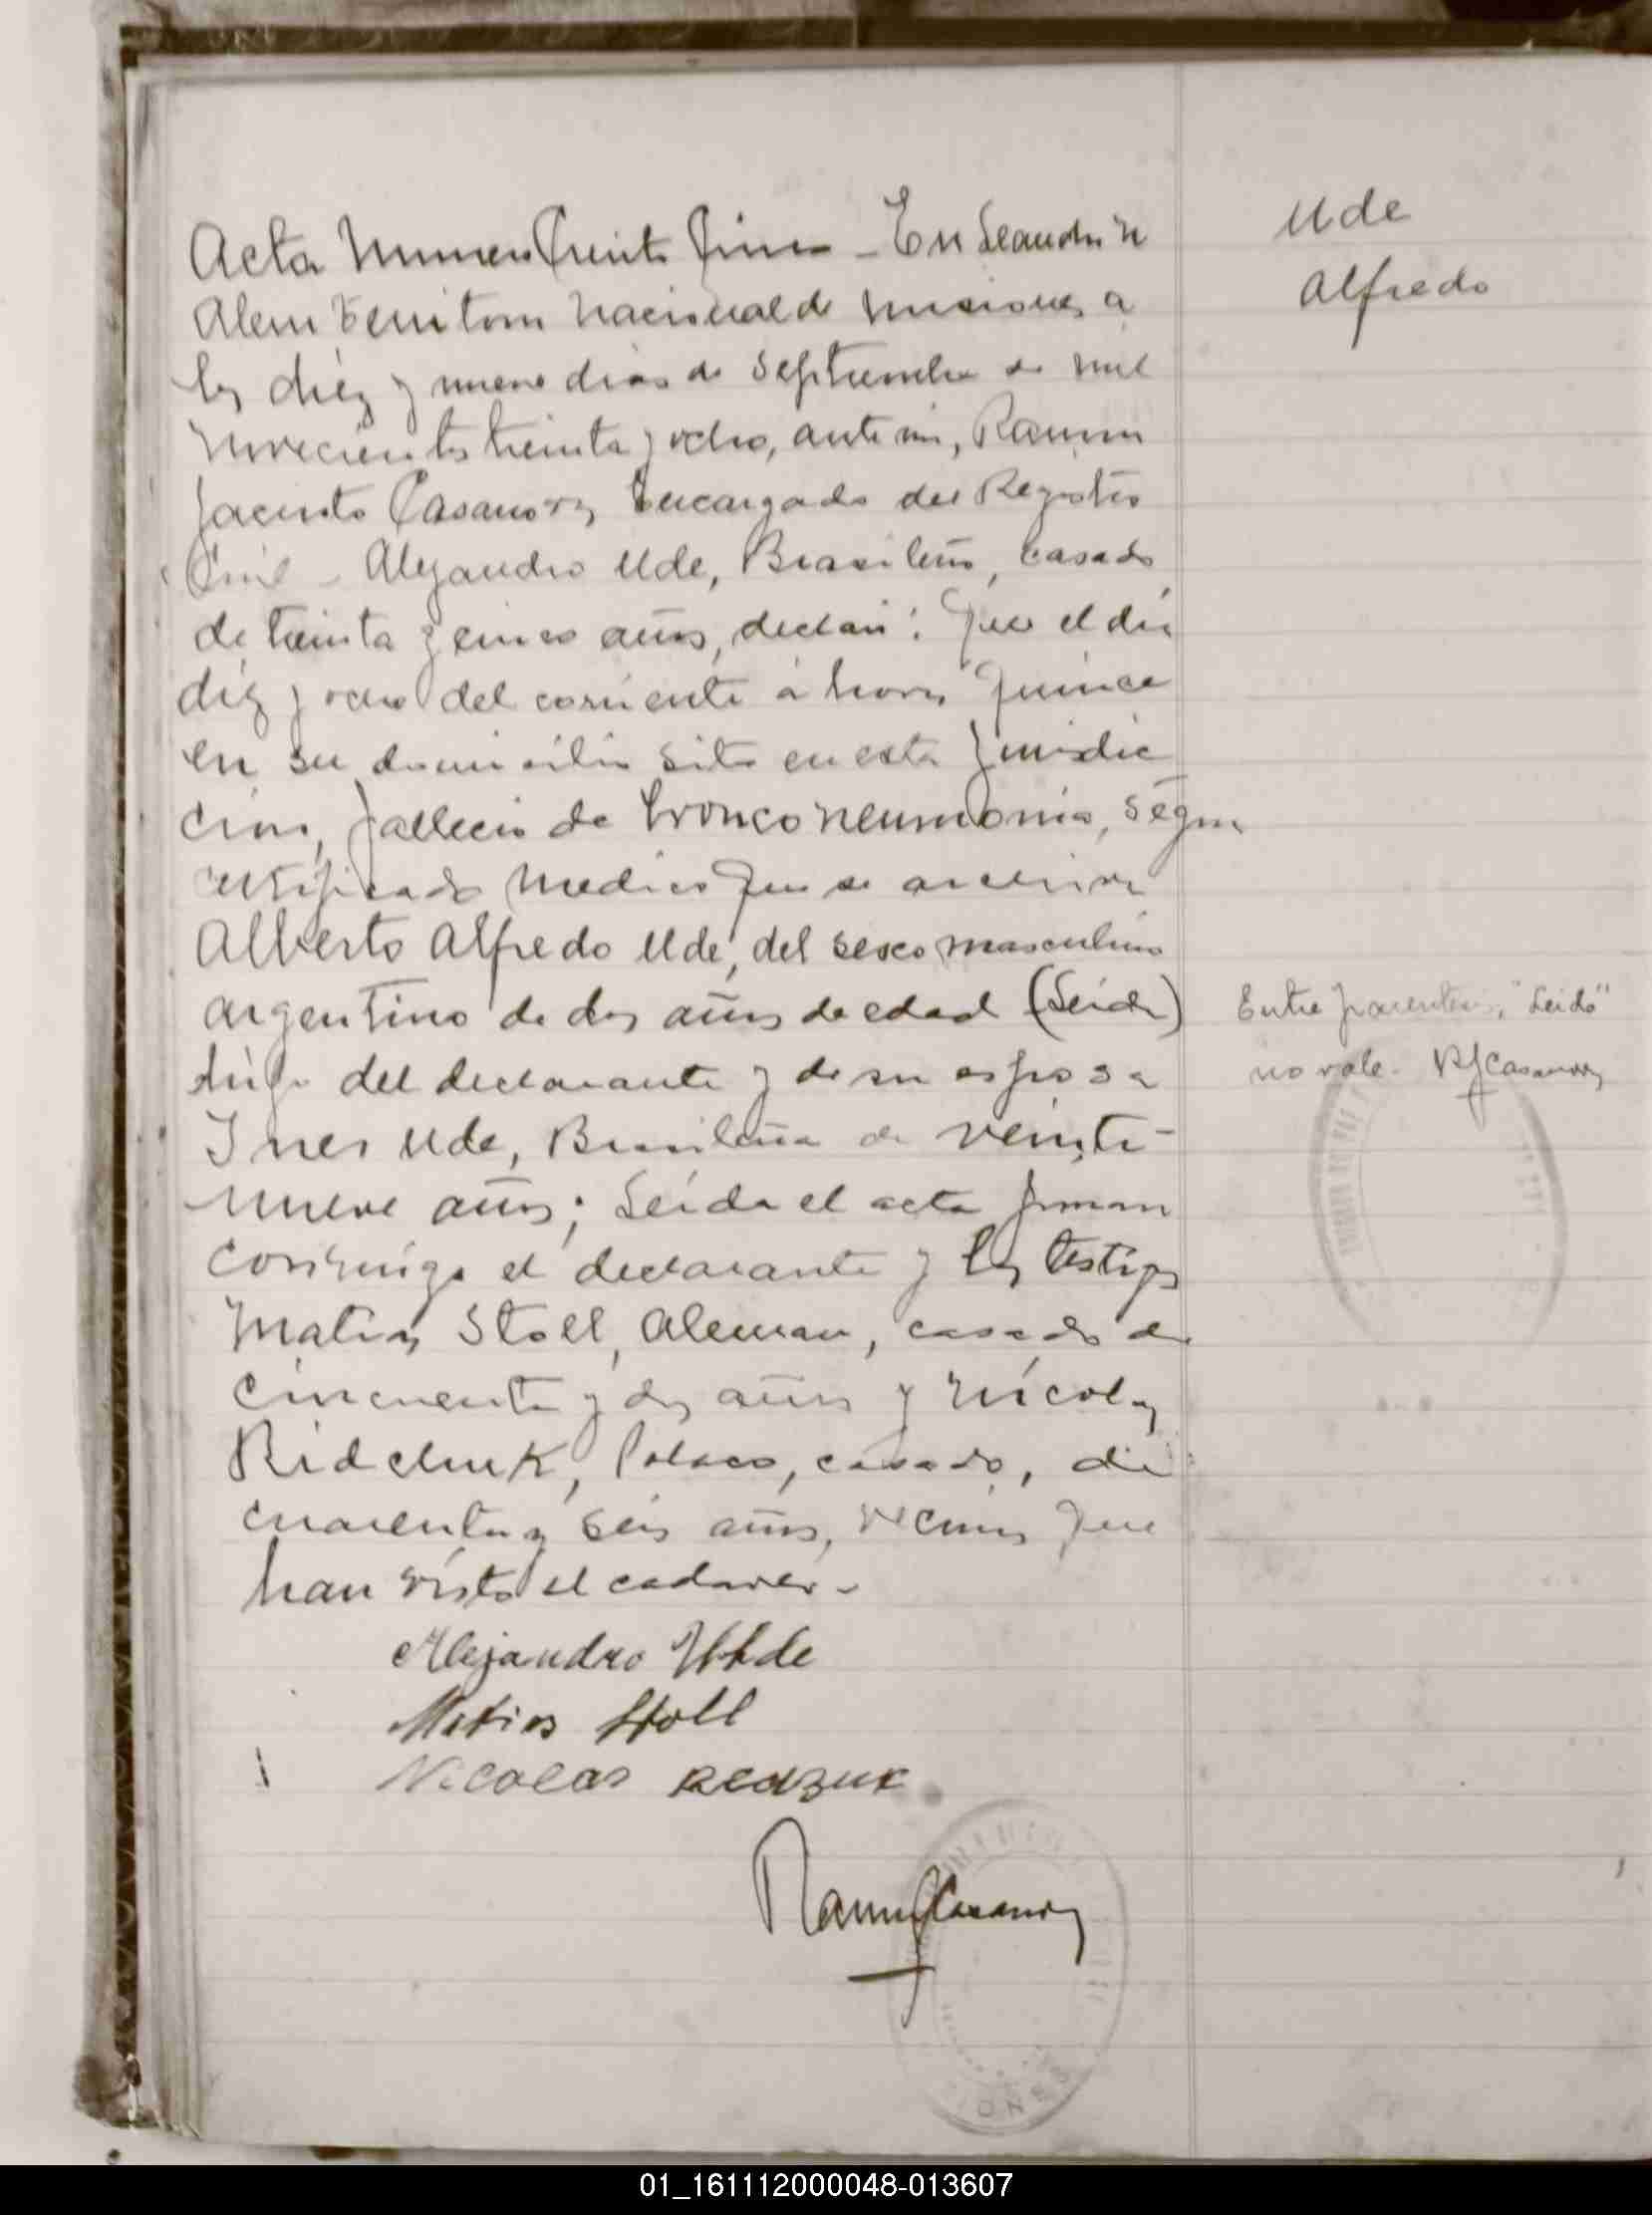 Ude
Alfredo
Acta Numero Treinta Cinco - En Leandro N
Alem Territorio Nacional de Misiones, a
los diez y nueve dias de Septiembre de mil
novecientos treinta y ocho, ante mi, Ramon
Jacinto Casanova, Encargado del Registro
Civil - Alejandro Ude, Brasileño, casado
de treinta y cinco años, declaró: Que el dia
diez y ocho del corriente á horas quince
en su domicilio sito en esta jurisdic
cion, fallecio de bronconeumonia, segun
certificado medico que se archiva
Alberto Alfredo Ude, del sexo masculino
argentino de dos años de edad (Leida)
hijo del declarante y de su esposa
Ines Ude, Brasileña de veinti-
nueve años; Leida el acta firman
conmigo el declarante y los testigos
Matias Stoll, Aleman, casado de
cincuenta y dos años y Nicolas
Ridchuk, Polaco, casado, de
cuarenta y seis años, vecinos que
han visto el cadaver.-
Entre parentesis, "Leido"
no vale. RJCasanova
Alejandro Uhde
Matias Stoll
Nicolas Redzuk
Ramon J Casanova
IONES
01_161112000048-013607